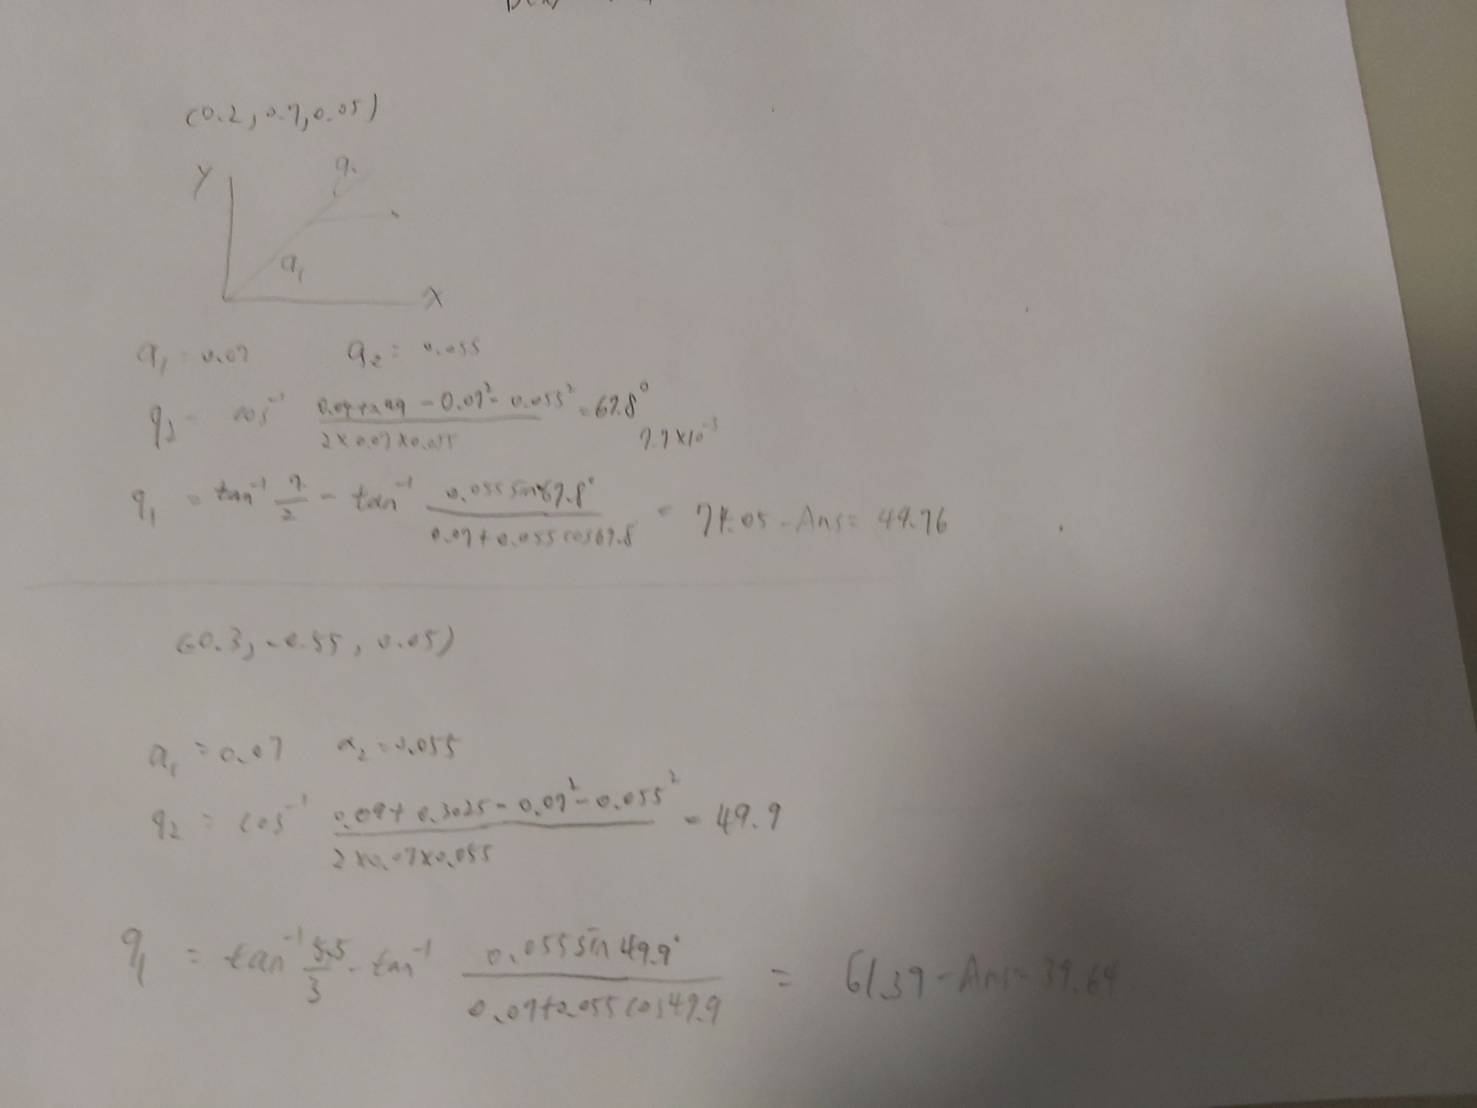 (0.2, 0.7, 0.05)
Y
a₁
X
a₁ = 0.07 a₂ = 0.055
q₂ = cos⁻¹ (0.04+0.49 - 0.07² - 0.055²)/(2×0.07×0.055) = 67.8°
7.7×10⁻³
q₁ = tan⁻¹ 7/2 - tan⁻¹ (0.055 sin 67.8°)/(0.07+0.055 cos 67.8) = 74.05 - Ans = 49.76
(0.3, -0.55, 0.05)
a₁ = 0.07 a₂ = 0.055
q₂ = cos⁻¹ (0.09+0.3025 - 0.07² - 0.055²)/(2×0.07×0.055) = 49.9
q₁ = tan⁻¹ 5.5/3 - tan⁻¹ (0.055 sin 49.9°)/(0.07+0.055 cos 49.9) = 61.39 - Ans = 39.64